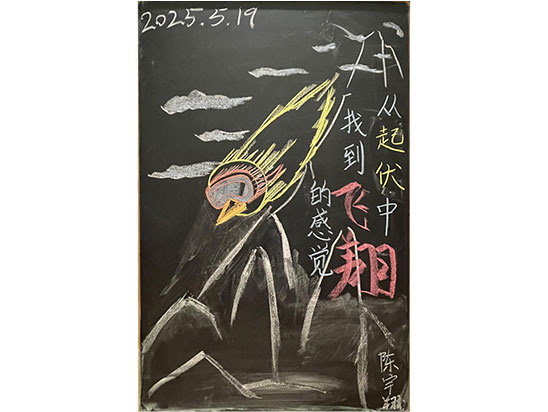 2025.5.19
从起伏中
找到飞翔
的感觉
陈宇翔